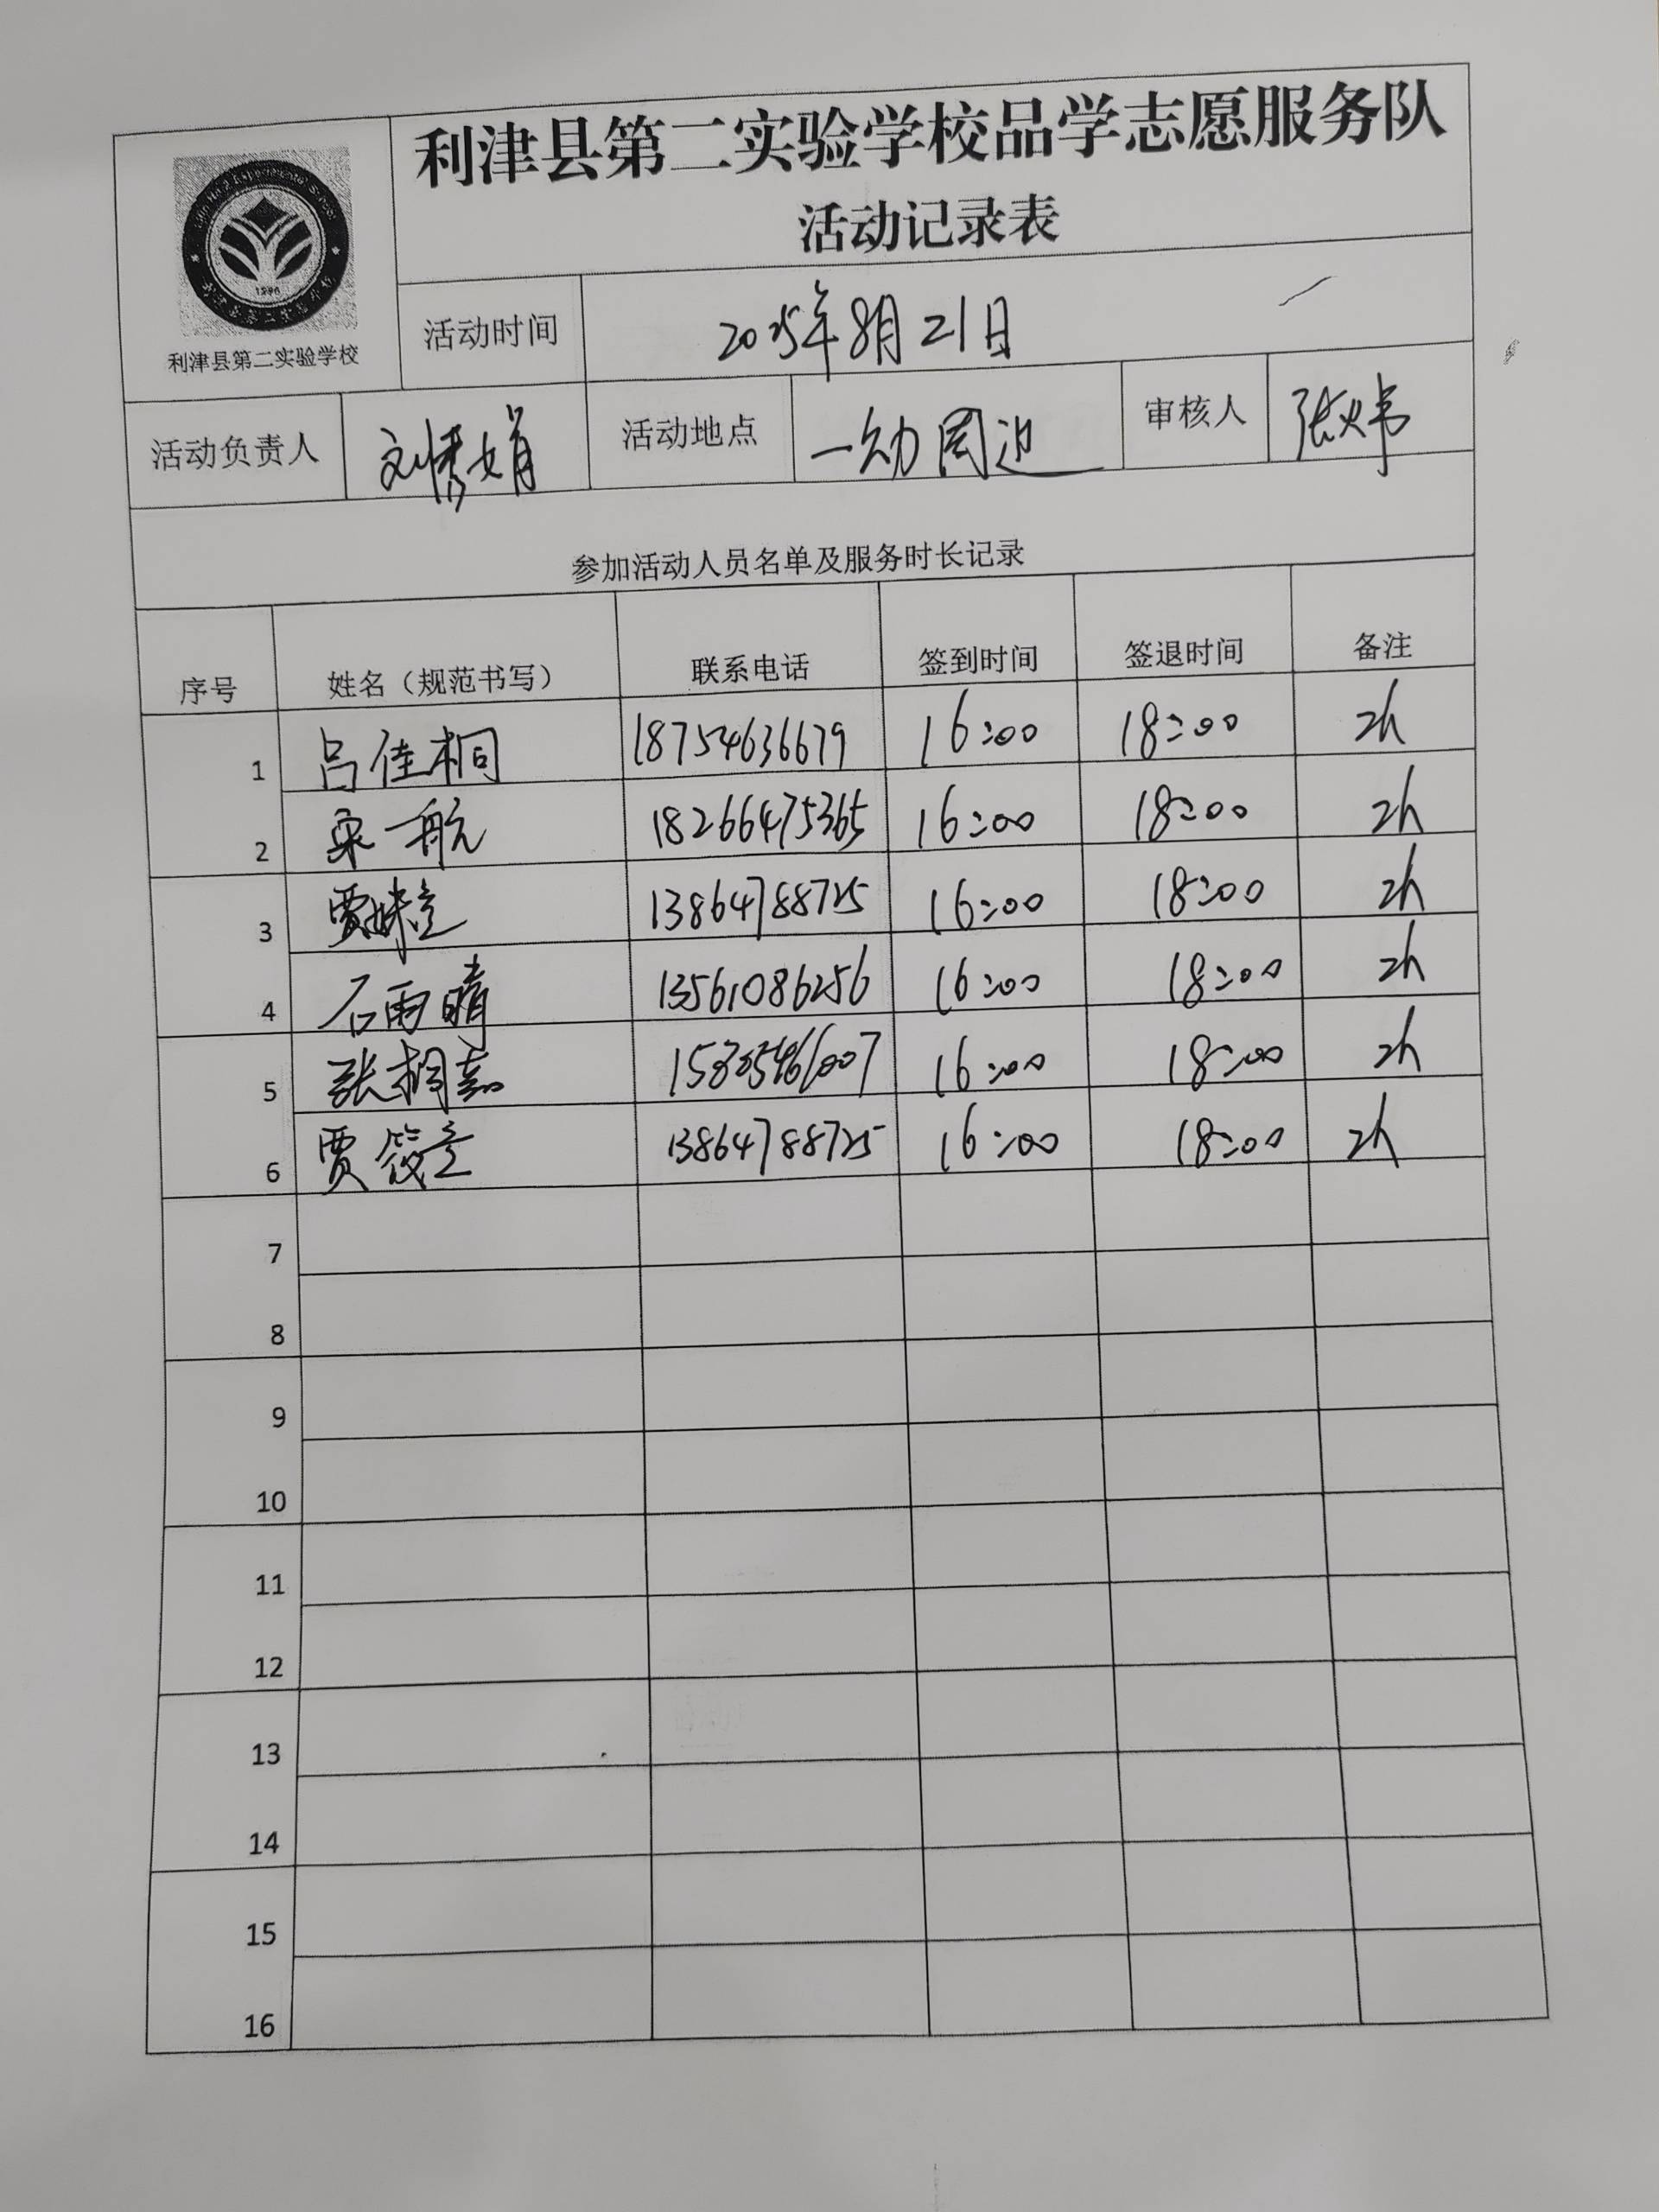 利津县第二实验学校品学志愿服务队
活动记录表
利津县第二实验学校
活动时间 2025年8月21日
活动负责人 活动地点 一幼周边 审核人
参加活动人员名单及服务时长记录
序号 姓名（规范书写） 联系电话 签到时间 签退时间 备注
1 吕佳桐 18754636679 16:00 18:00 2h
2 一航 18266475365 16:00 18:00 2h
3 贾 13864788725 16:00 18:00 2h
4 石雨晴 13561086256 16:00 18:00 2h
5 张桐嘉 16:00 18:00 2h
6 贾筱 13864788725 16:00 18:00 2h
7
8
9
10
11
12
13
14
15
16